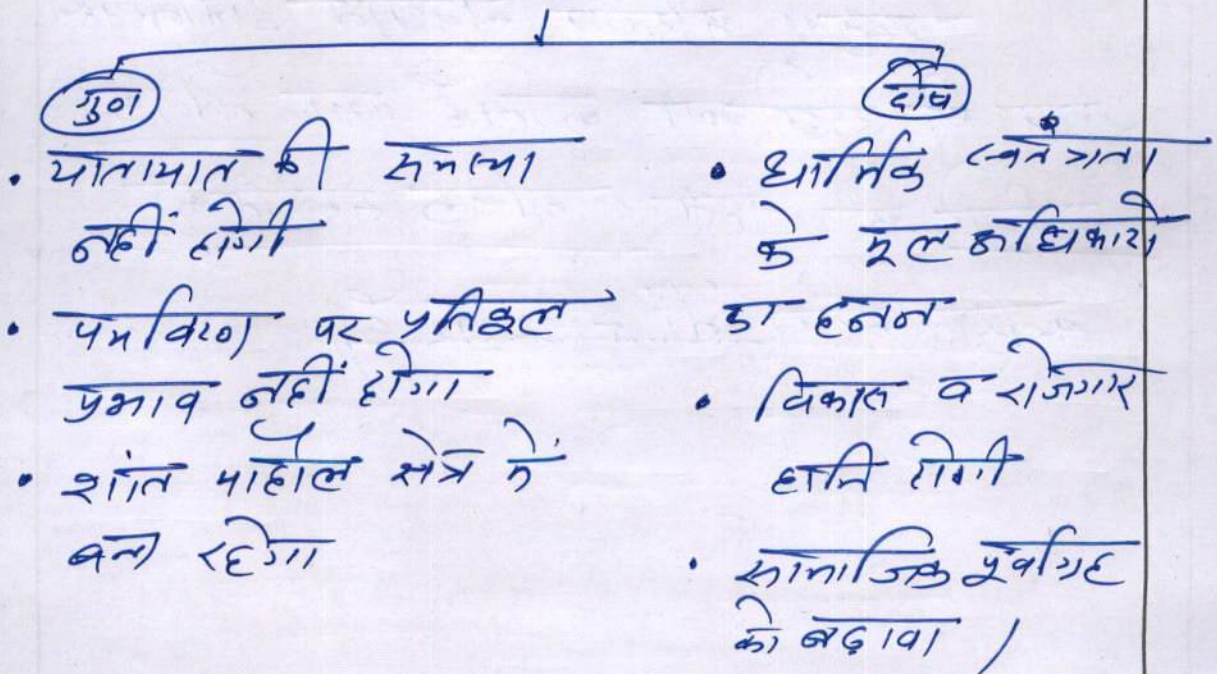 गुण
• यातायात की समस्या
नहीं होगी
• पर्यावरण पर प्रतिकूल
प्रभाव नहीं होगा
• शांत माहौल क्षेत्र में
बना रहेगा
दोष
• धार्मिक स्वतंत्रता
के मूल अधिकारों
का हनन
• विकास व रोजगार
हानि होगी
• सामाजिक पूर्वाग्रह
को बढ़ावा /